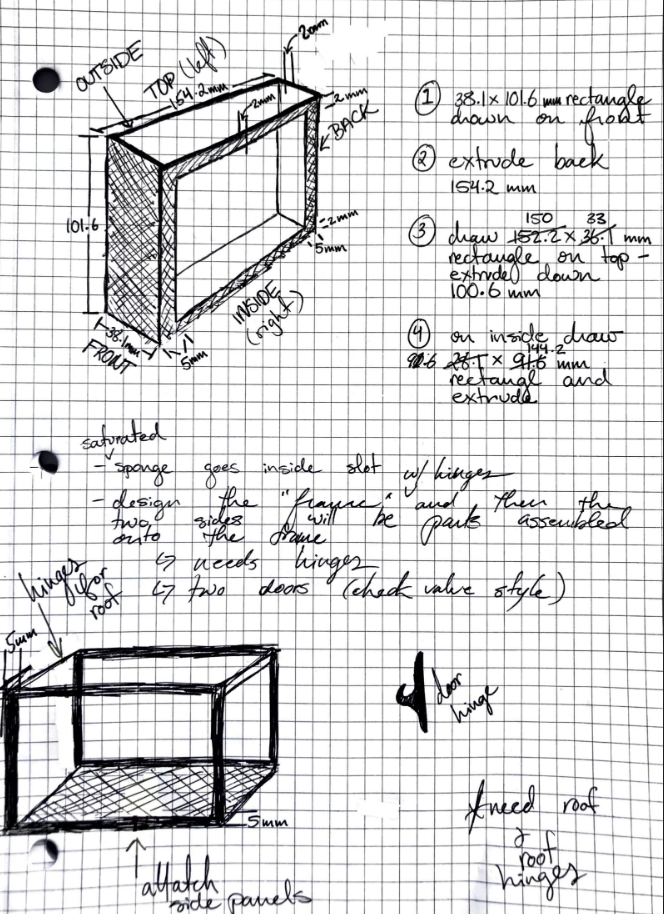 OUTSIDE
TOP (left)
154.2mm
2mm
2mm
2mm
BACK
101.6
2mm
5mm
INSIDE
(right)
38.1mm
FRONT
5mm
① 38.1 x 101.6 mm rectangle
drawn on front
② extrude back
154.2 mm
150 33
③ draw 152.2 x 36.1 mm
rectangle on top -
extrude down
100.6 mm
④ on inside draw
144.2
x 91.6 mm
rectangl and
extrude
saturated
- sponge goes inside slot w/ hinges
- design the "frame" and then the
two sides will be parts assembled
onto the frame
↳ needs hinges
↳ two doors (check valve style)
hinges
for
roof
5mm
door
hinge
5mm
attatch
side panels
need roof
&
roof
hinges